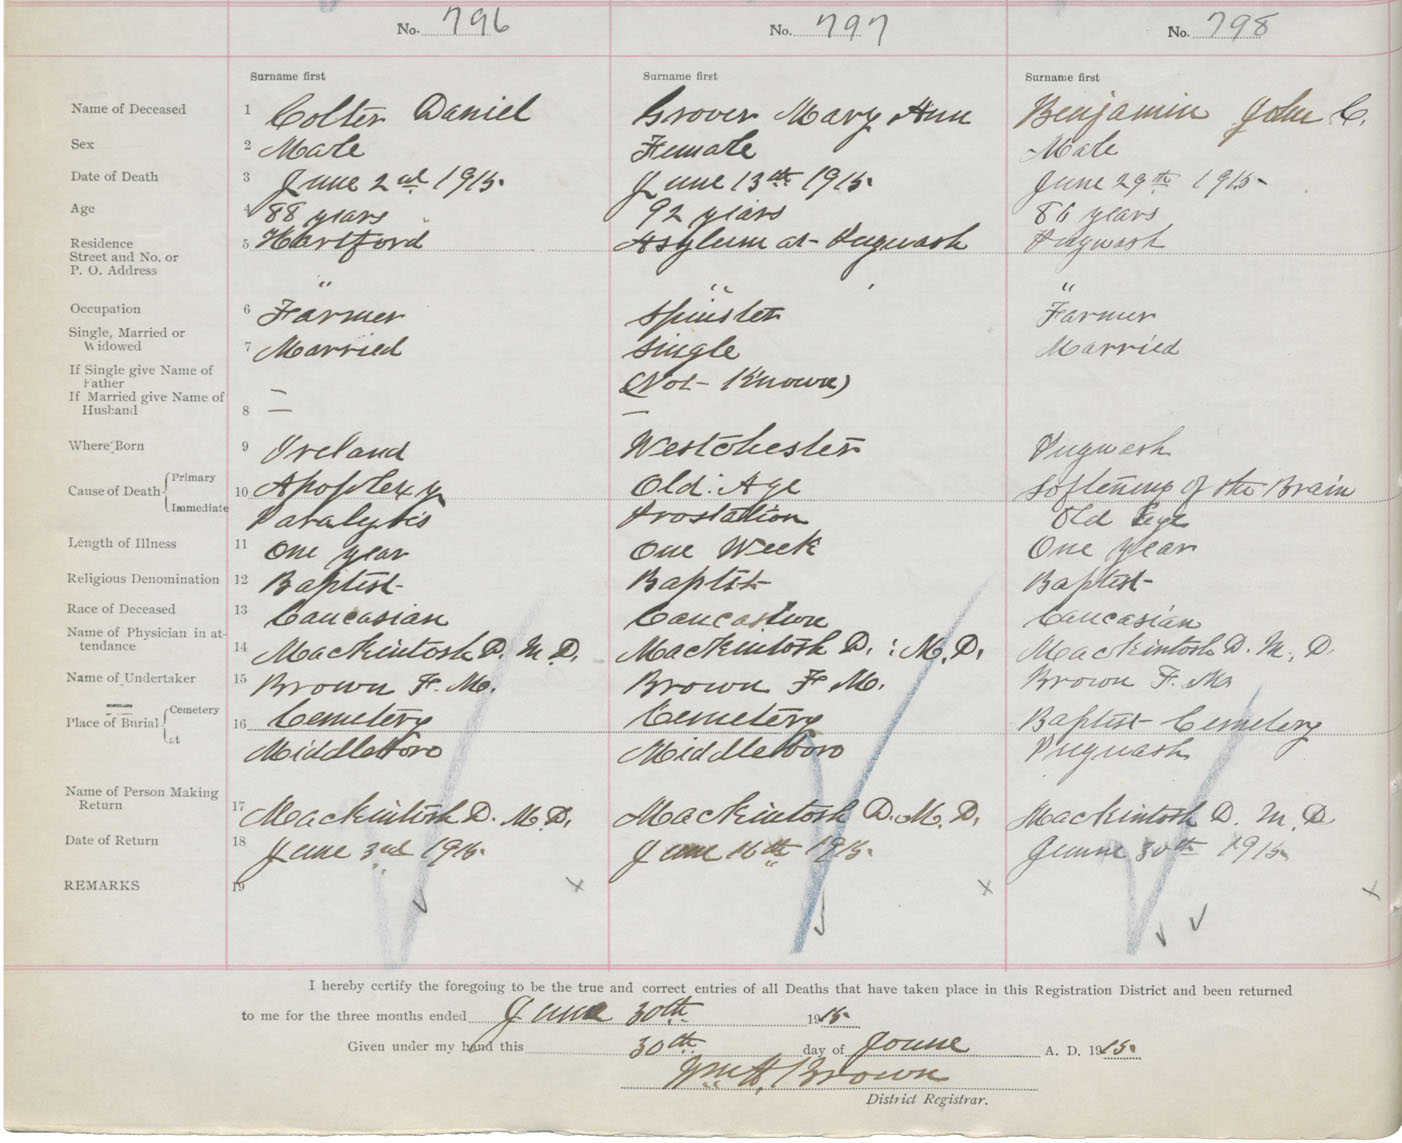 No. 796 No. 797 No. 798
Surname first Surname first Surname first
Name of Deceased 1 Colter Daniel Grover Mary Ann Benjamin John C.
Sex 2 Male Female Male
Date of Death 3 June 2nd 1915. June 13th 1915. June 29th 1915-
Age 4 88 years 92 years 86 years
Residence 5 Hartford Asylum at Pugwash Pugwash
Street and No. or
P. O. Address
" " "
Occupation 6 Farmer Spinster Farmer
Single, Married or
Widowed 7 Married Single Married
If Single give Name of
Father — (Not Known)
If Married give Name of
Husband 8 — —
Where Born 9 Ireland Westchester Pugwash
Cause of Death Primary 10 Apoplexy Old Age Softening of the Brain
Immediate Paralysis Prostation Old Age
Length of Illness 11 One year One Week One year
Religious Denomination 12 Baptist Baptist Baptist
Race of Deceased 13 Caucasian Caucasian Caucasian
Name of Physician in at-
tendance 14 Mackintosh D. M. D. Mackintosh D. : M. D. Mackintosh D. M. D.
Name of Undertaker 15 Brown F. M. Brown F M. Brown F. M.
Place of Burial Cemetery 16 Cemetery Cemetery Baptist Cemetery
at Middleboro Middleboro Pugwash
Name of Person Making
Return 17 Mackintosh D. M.D. Mackintosh D. M. D. Mackintosh D. M. D.
Date of Return 18 June 3rd 1915. June 16th 1915. June 30th 1915.
REMARKS 19 x x x
I hereby certify the foregoing to be the true and correct entries of all Deaths that have taken place in this Registration District and been returned
to me for the three months ended June 30th 1915.
Given under my hand this 30th day of June A. D. 1915.
Wm H. Brown
District Registrar.